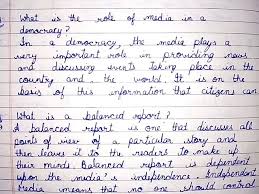 What is the role of media in a
democracy?
In a democracy, the media plays a
very important role in providing news
and discussing events taking place in the
country and the world. It is on the
basis of this information that citizens can
What is a balanced report?
A balanced report is one that discusses all
points of view of a particular story and
then leaves it to the readers to make up
their minds. Balanced report is dependent
upon the media's independence. Independent
Media means that no one should control